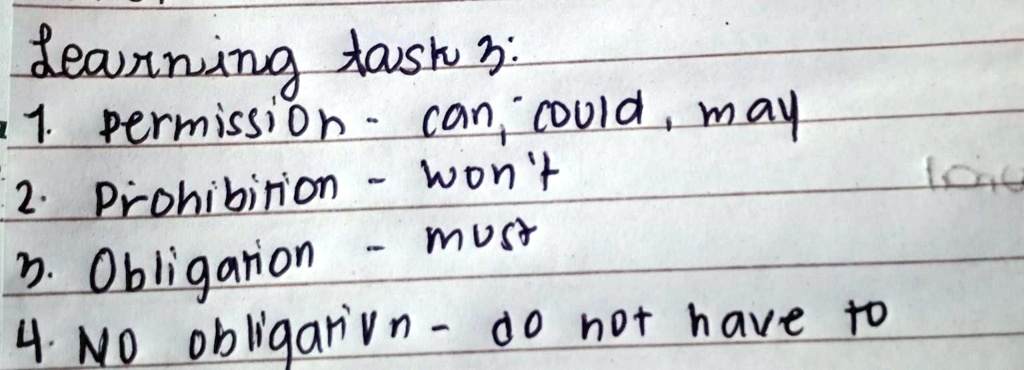 Learning task 3:
1. permission - can, could, may
2. Prohibition - won't
3. Obligation - must
4. No obligation - do not have to